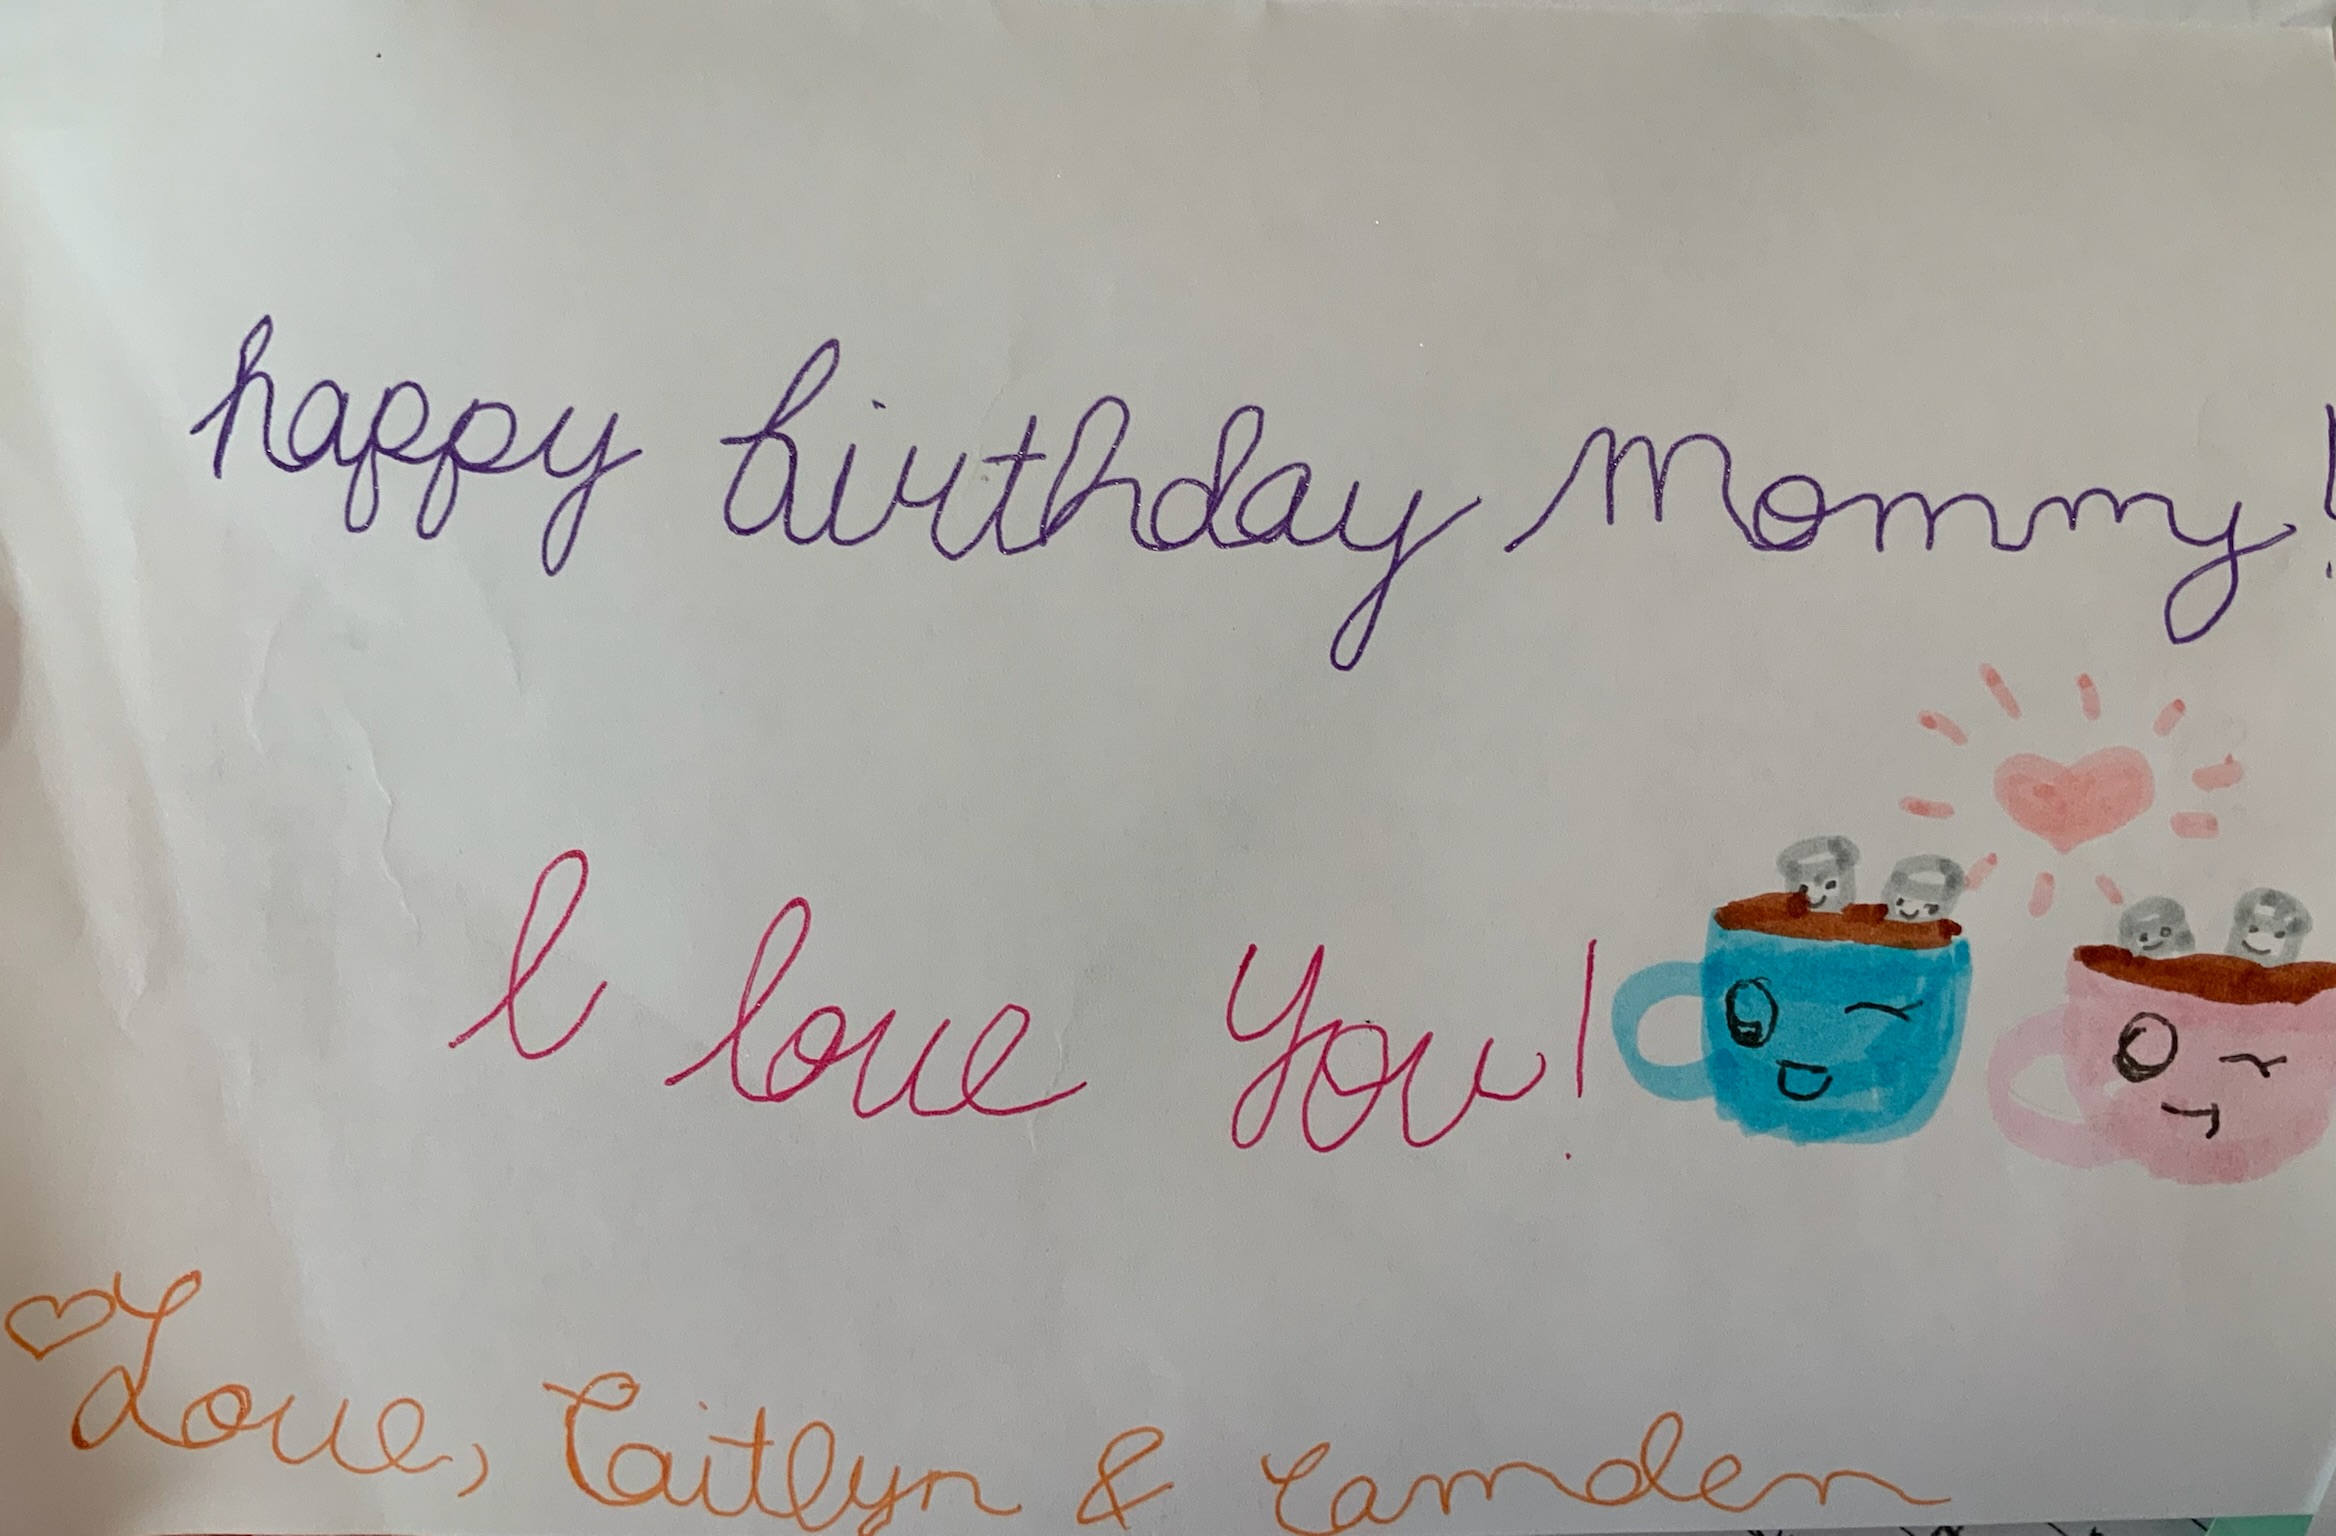 happy birthday Mommy!
I love You!
Love, Caitlyn & Camden